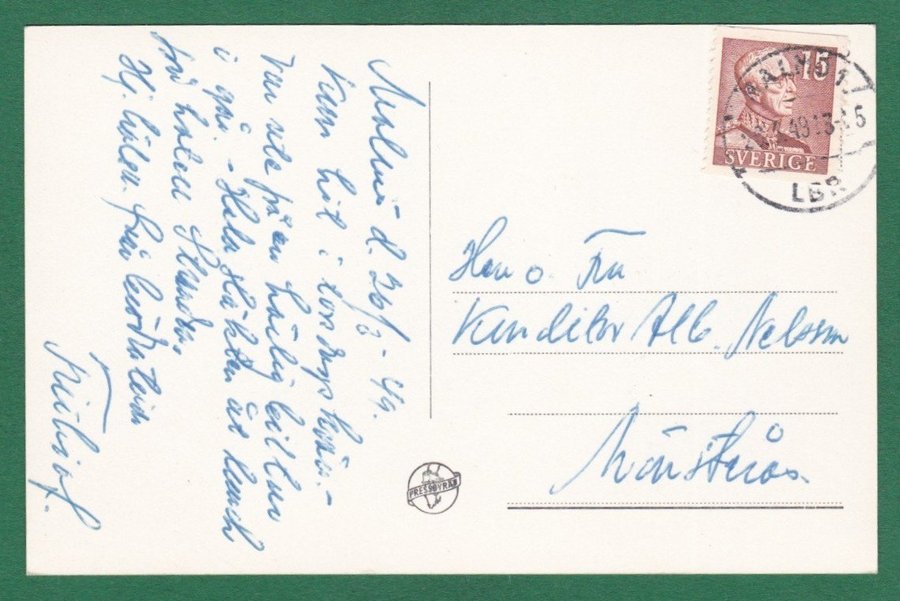 Malmö d. 30/7-49.
Kom hit i torsdags kväll.-
Var ute på en härlig biltur
i går. - Hela släkten åt lunch
på hotell
Hj. hälsn. från
Fritiof.
15
SVERIGE
MALMÖ 1
49
LBR
Herr o. Fru
Konditor Alb. Nelson
Mönsterås.
PRESSBYRÅN